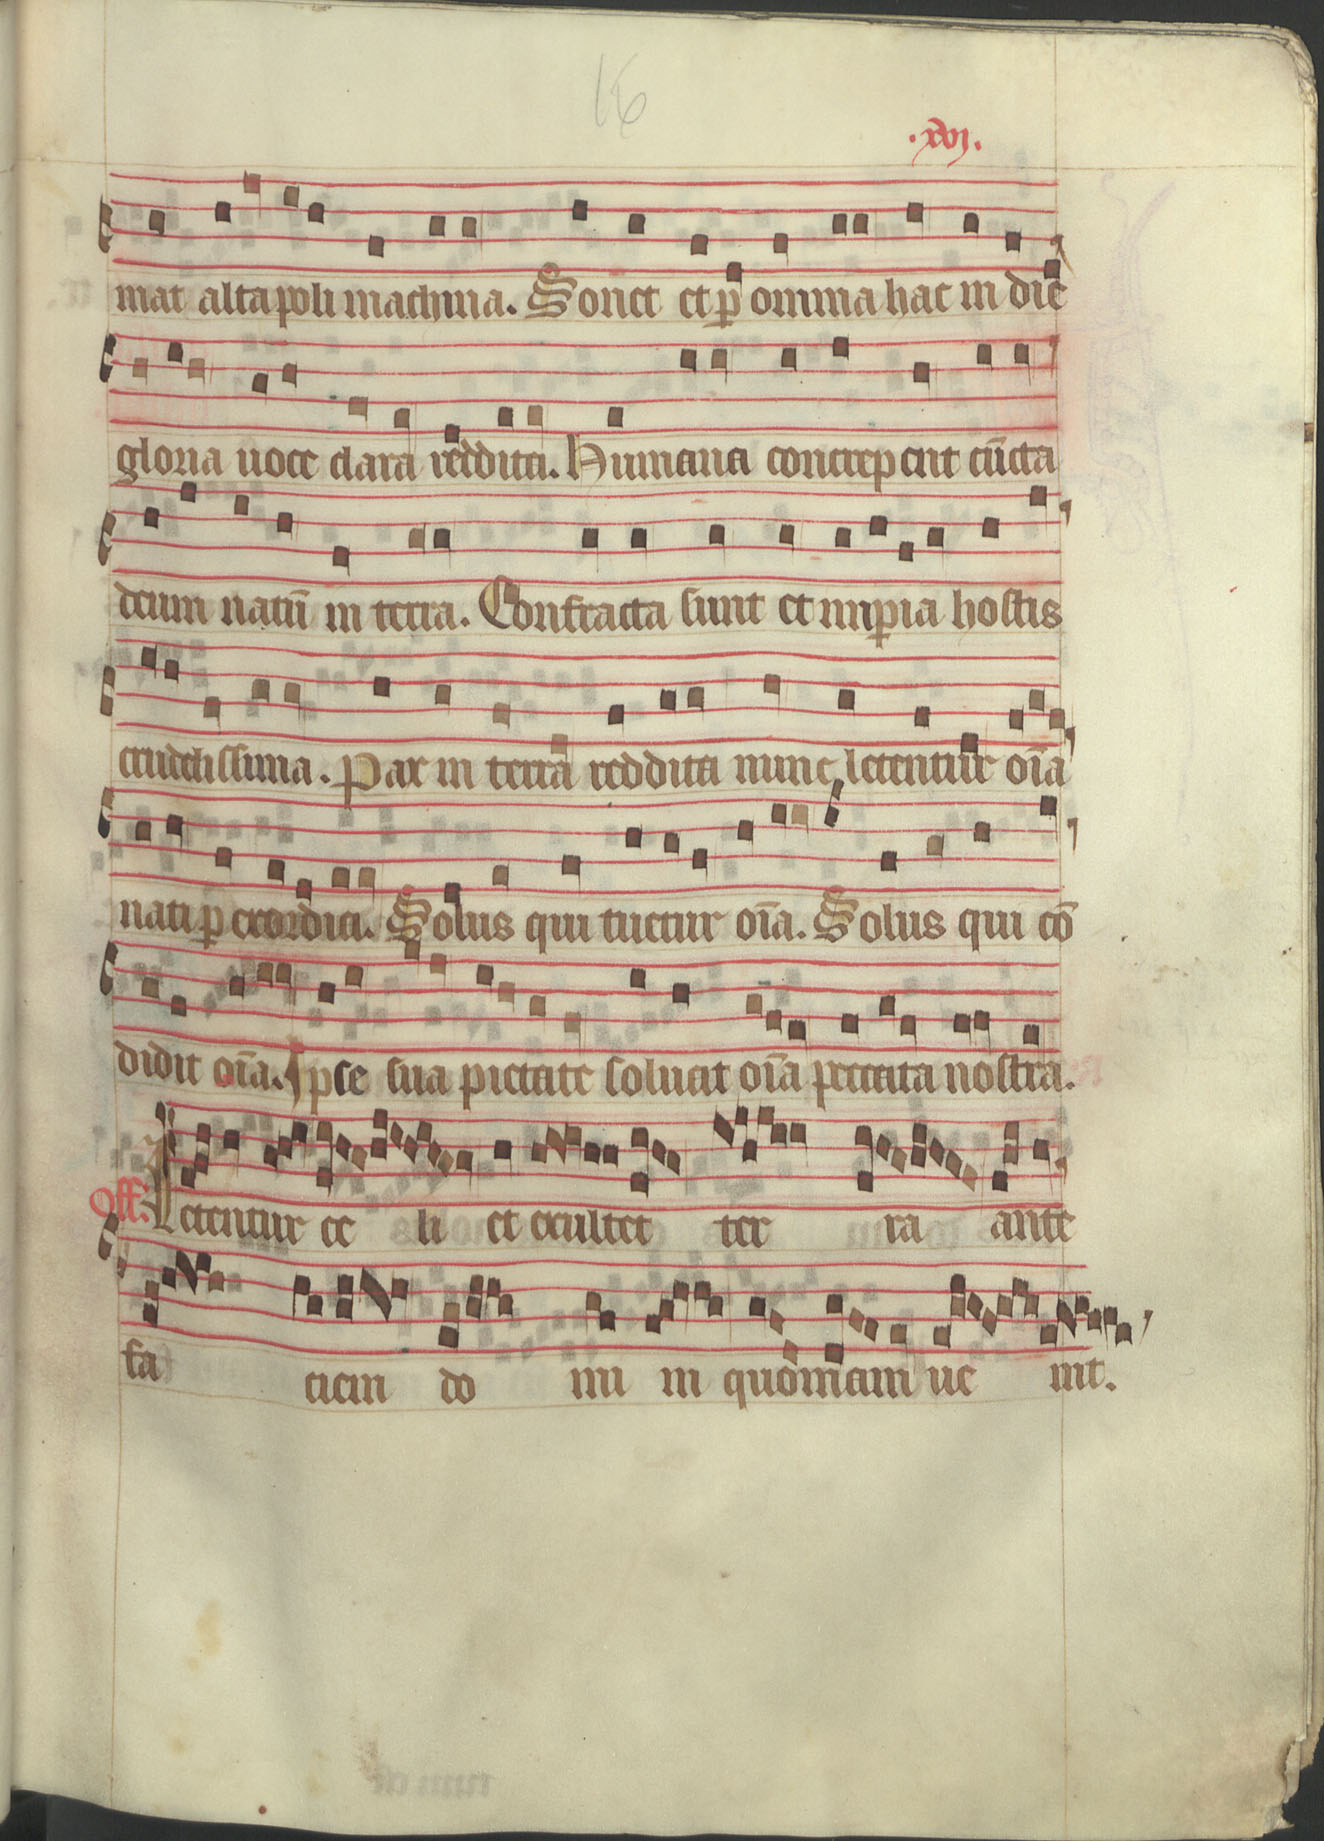 16
.xvi.
mat alta poli machina. Sonet et p̱ omnia hac in die
gloria uoce clara reddita. Humana concrepent cūcta
deum natū in terra. Confracta sunt et imp̱ia hostis
crudelissima. Pax in terra reddita nunc letentur oīa
nati p̱ exordia. Solus qui tuetur oīa. Solus qui cō
didit oīa. Ipse sua pietate soluat oīa peccata nostra.
Off. Letentur ce li et exultet ter ra ante
fa ciem do mi ni quoniam ue nit.